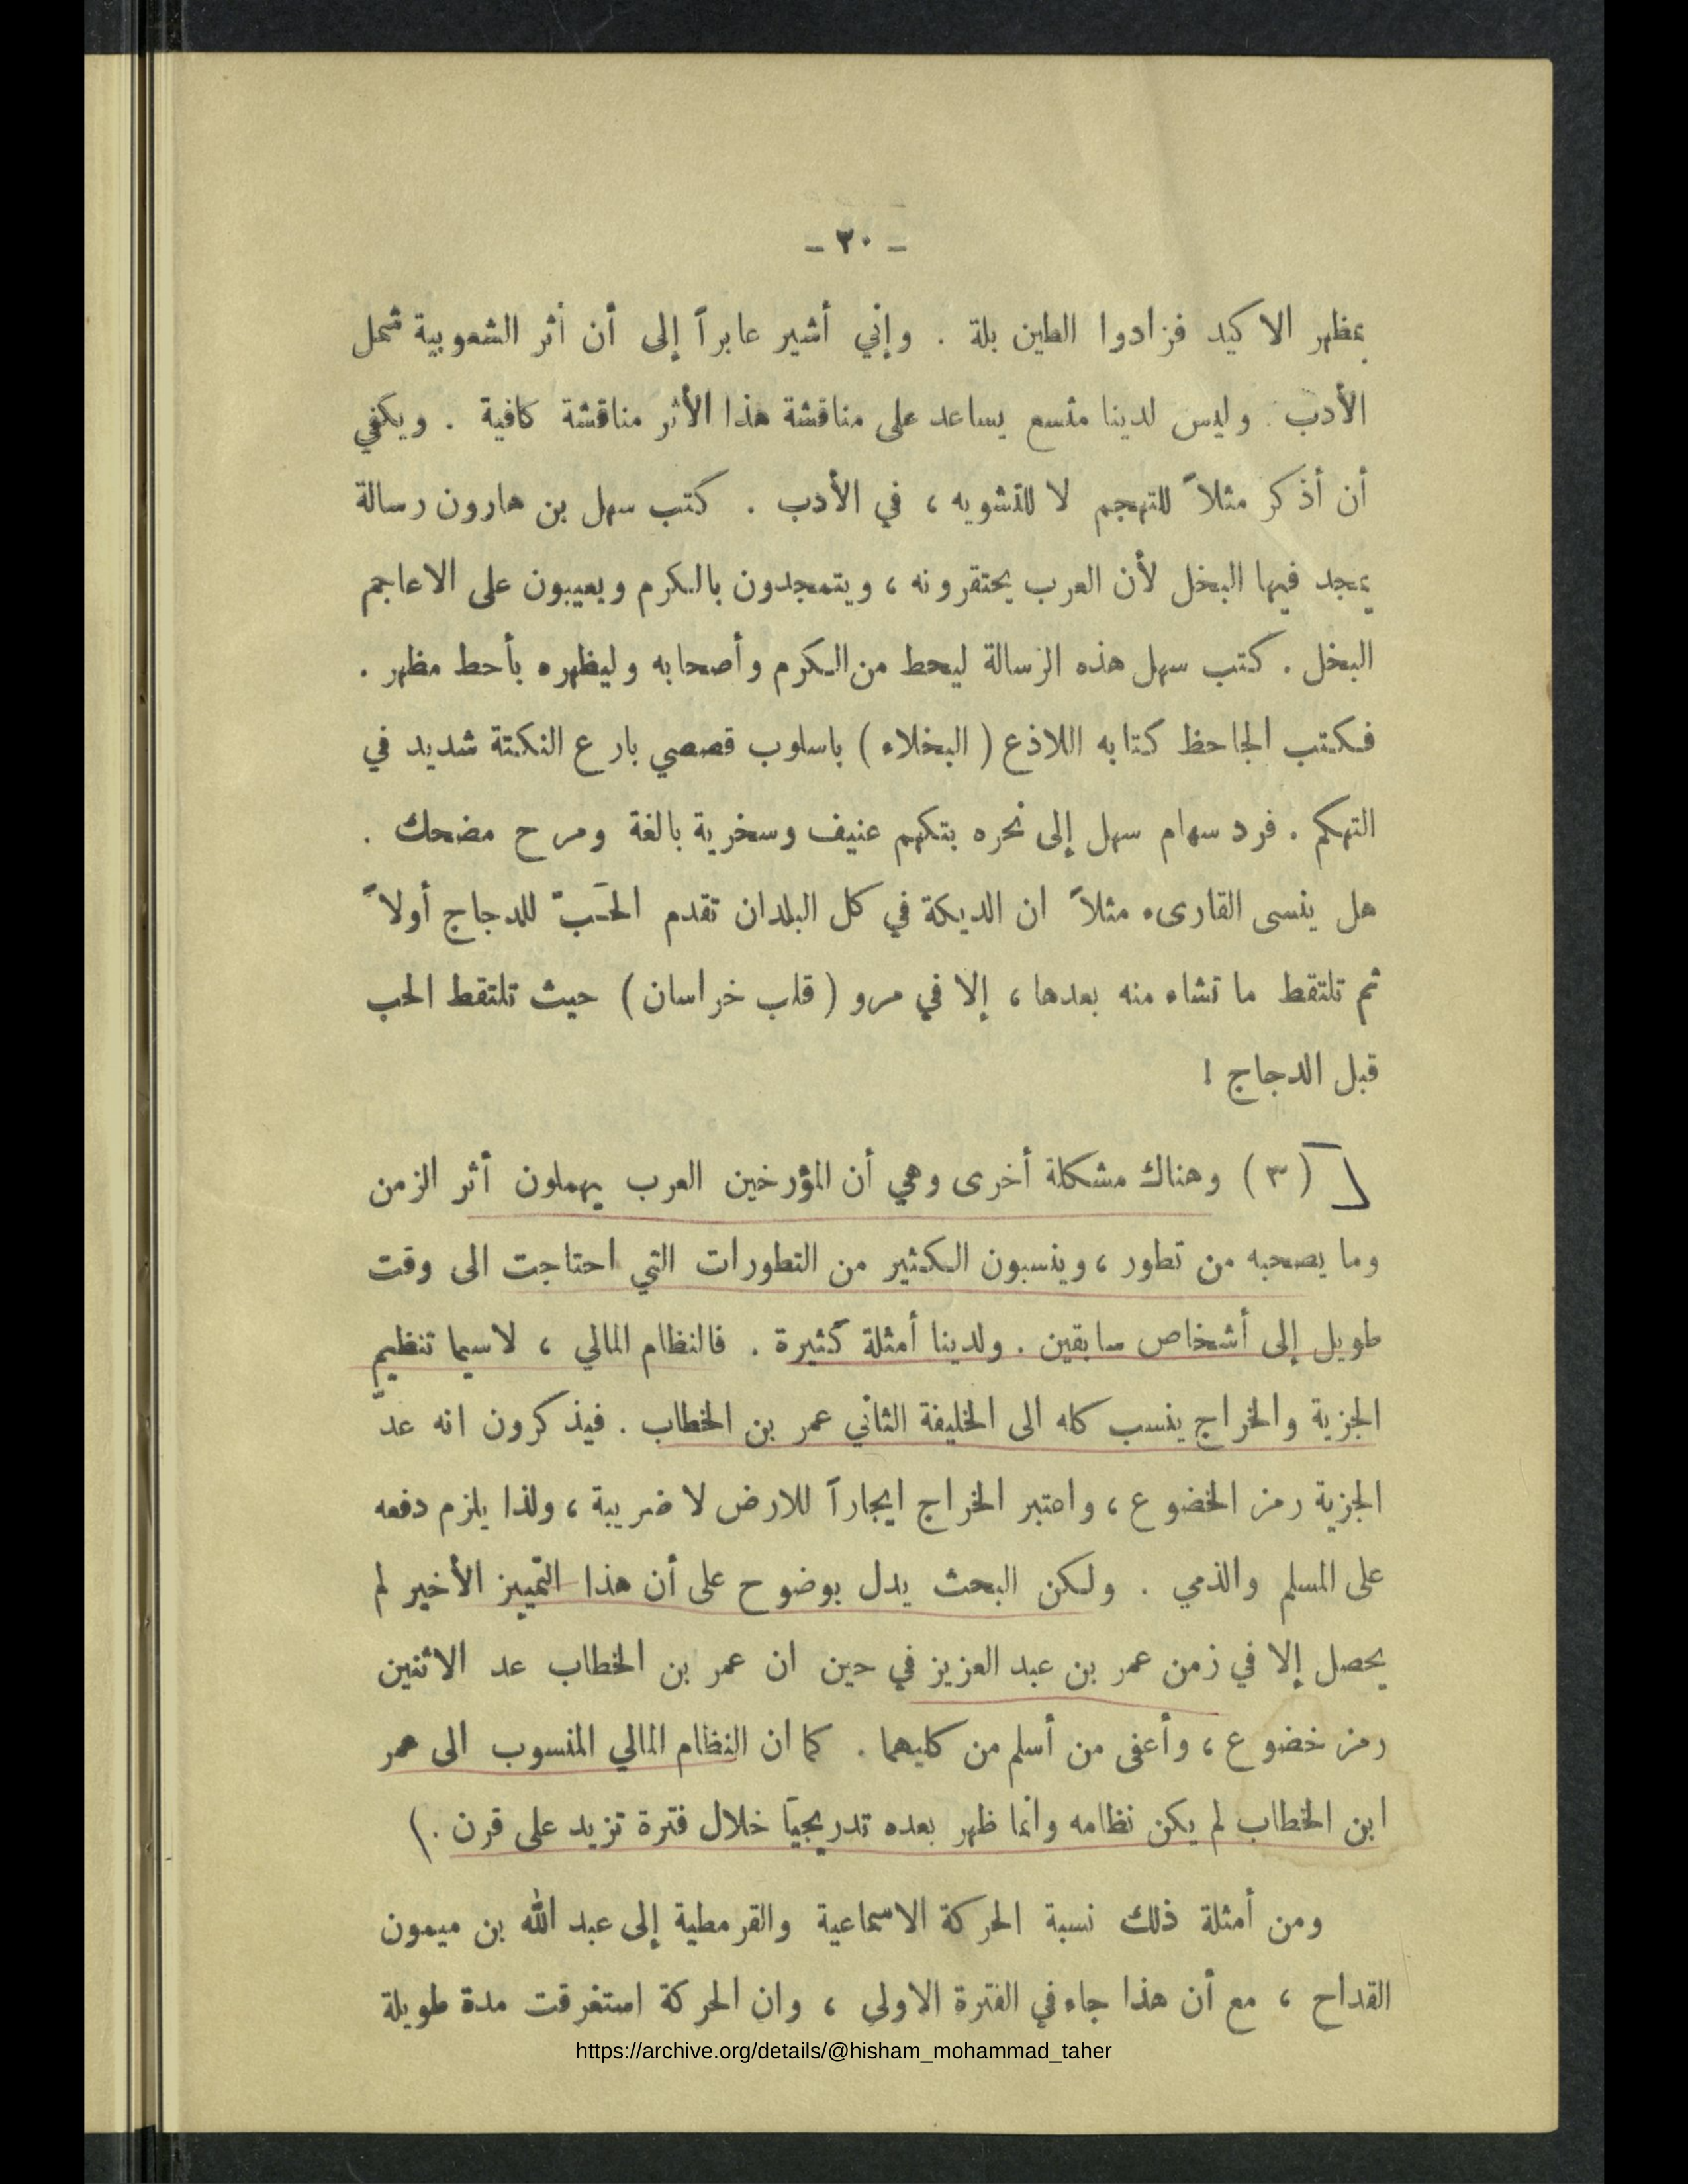 - ٢٠ -
بمظهر الاكيد فزادوا الطين بلة . وإني أشير عابراً إلى أن أثر الشعوبية شمل
الأدب . وليس لدينا متسع يساعد على مناقشة هذا الأثر مناقشة كافية . ويكفي
أن أذكر مثلاً للتهجم لا للتشويه ، في الأدب . كتب سهل بن هارون رسالة
يمجد فيها البخل لأن العرب يحتقرونه ، ويتمجدون بالكرم ويعيبون على الاعاجم
البخل . كتب سهل هذه الرسالة ليحط من الكرم وأصحابه وليظهره بأحط مظهر .
فكتب الجاحظ كتابه اللاذع ( البخلاء ) باسلوب قصصي بارع النكتة شديد في
التهكم . فرد سهام سهل إلى نحره بتكهم عنيف وسخرية بالغة ومرح مضحك .
هل ينسى القارىء مثلاً ان الديكة في كل البلدان تقدم الحَبّ للدجاج أولاً
ثم تلتقط ما تشاء منه بعدها ، إلا في مرو ( قلب خراسان ) حيث تلتقط الحب
قبل الدجاج !
( ٣ ) وهناك مشكلة أخرى وهي أن المؤرخين العرب يهملون أثر الزمن
وما يصحبه من تطور ، وينسبون الكثير من التطورات التي احتاجت الى وقت
طويل إلى أشخاص سابقين . ولدينا أمثلة كثيرة . فالنظام المالي ، لاسيما تنظيم
الجزية والخراج ينسب كله الى الخليفة الثاني عمر بن الخطاب . فيذكرون انه عدّ
الجزية رمز الخضوع ، واعتبر الخراج ايجاراً للارض لا ضريبة ، ولذا يلزم دفعه
على المسلم والذمي . ولكن البحث يدل بوضوح على أن هذا التمييز الأخير لم
يحصل إلا في زمن عمر بن عبد العزيز في حين ان عمر بن الخطاب عد الاثنين
رمز خضوع ، وأعفى من أسلم من كليهما . كما ان النظام المالي المنسوب الى عمر
ابن الخطاب لم يكن نظامه وانما ظهر بعده تدريجياً خلال فترة تزيد على قرن .)
ومن أمثلة ذلك نسبة الحركة الاسماعية والقرمطية إلى عبد الله بن ميمون
القداح ، مع أن هذا جاء في الفترة الاولى ، وان الحركة استغرقت مدة طويلة
https://archive.org/details/@hisham_mohammad_taher